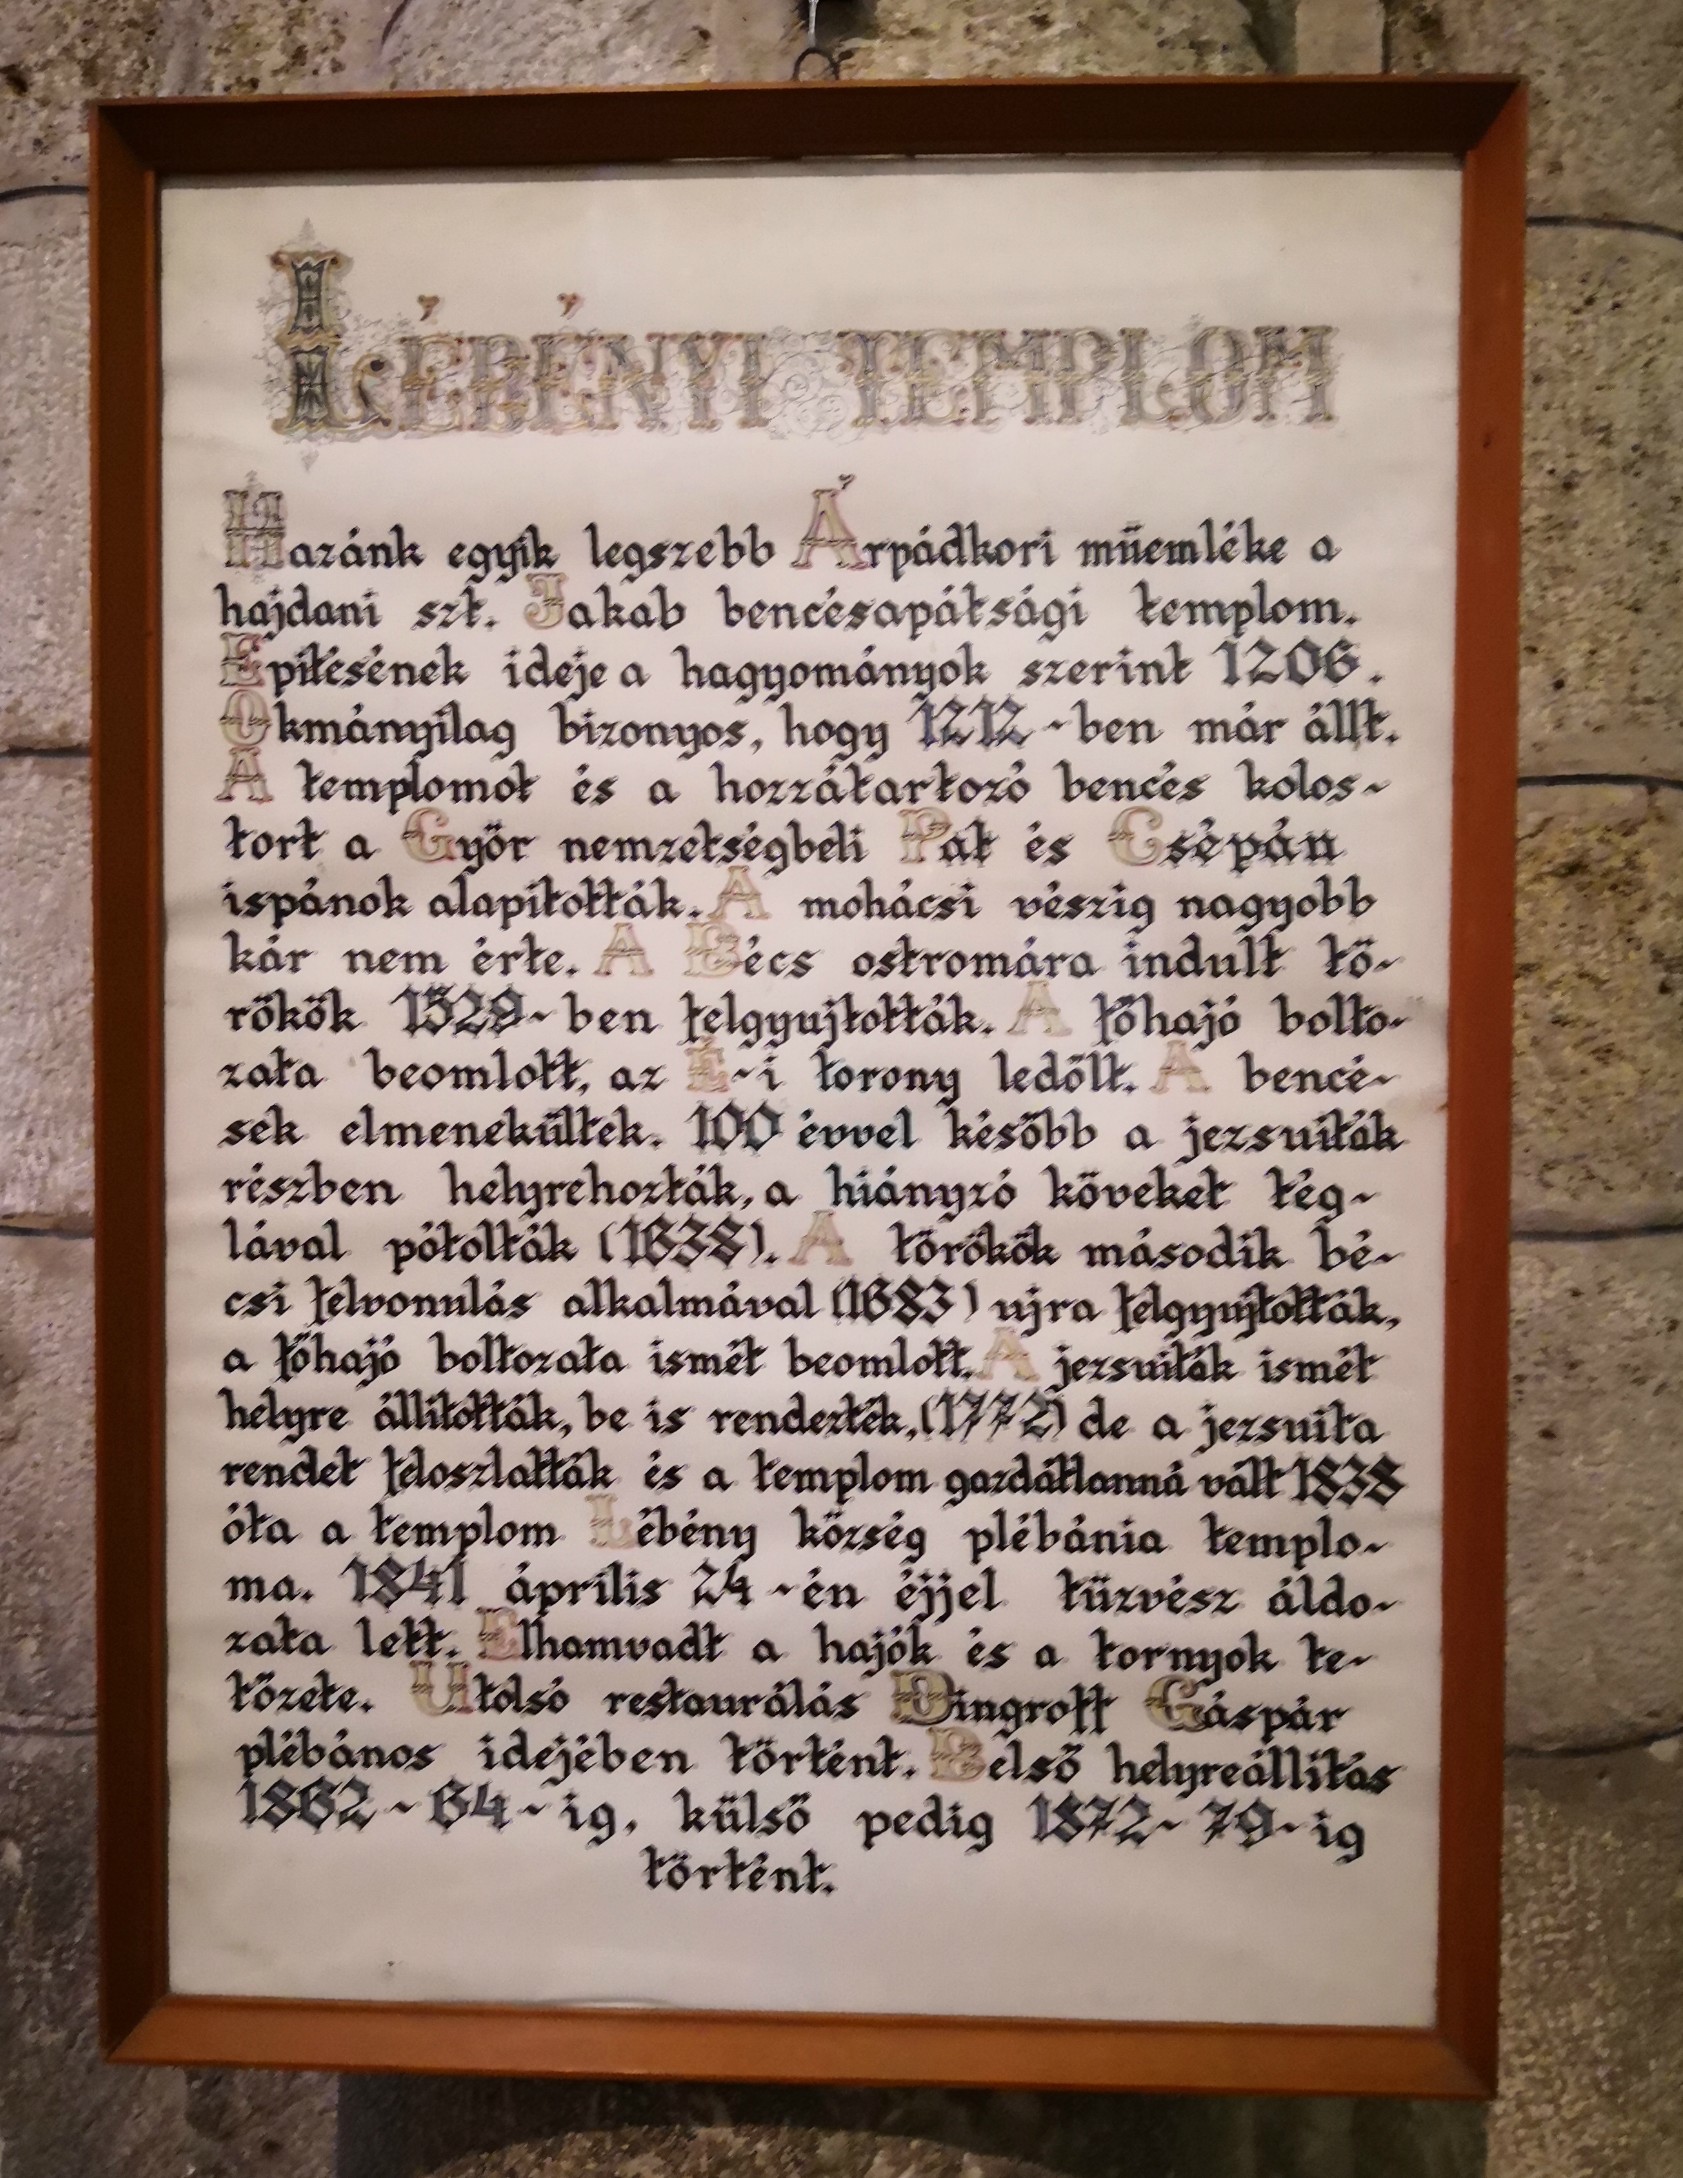 LÉBÉNYI TEMPLOM
Hazánk egyik legszebb Árpádkori müemléke a
hajdani szt. Jakab bencésapátsági templom.
Epitésének ideje a hagyományok szerint 1206.
Okmányilag bizonyos, hogy 1212-ben már állt.
A templomot és a hozzátartozó bencés kolos-
tort a Győr nemzetségbeli Pat és Csépán
ispánok alapitották. A mohácsi vészig nagyobb
kár nem érte. A Bécs ostromára indult tö-
rökök 1529-ben felgyujtották. A főhajó bolto-
zata beomlott, az É-i torony ledőlt. A bencé-
sek elmenekültek. 100 évvel később a jezsuiták
részben helyrehozták, a hiányzó köveket tég-
lával pótolták (1638). A törökök második bé-
csi felvonulás alkalmával (1683) ujra felgyujtották,
a főhajó boltozata ismét beomlott. A jezsuiták ismét
helyre állitották, be is rendezték, (1772) de a jezsuita
rendet feloszlatták és a templom gazdátlanná vált 1838
óta a templom Lébény község plébánia templo-
ma. 1841 április 24-én éjjel tüzvész áldo-
zata lett. Elhamvadt a hajók és a tornyok te-
tőzete. Utolsó restaurálás Dingroff Gáspár
plébános idejében történt. Belső helyreállitás
1862-64-ig, külső pedig 1872-79-ig
történt.